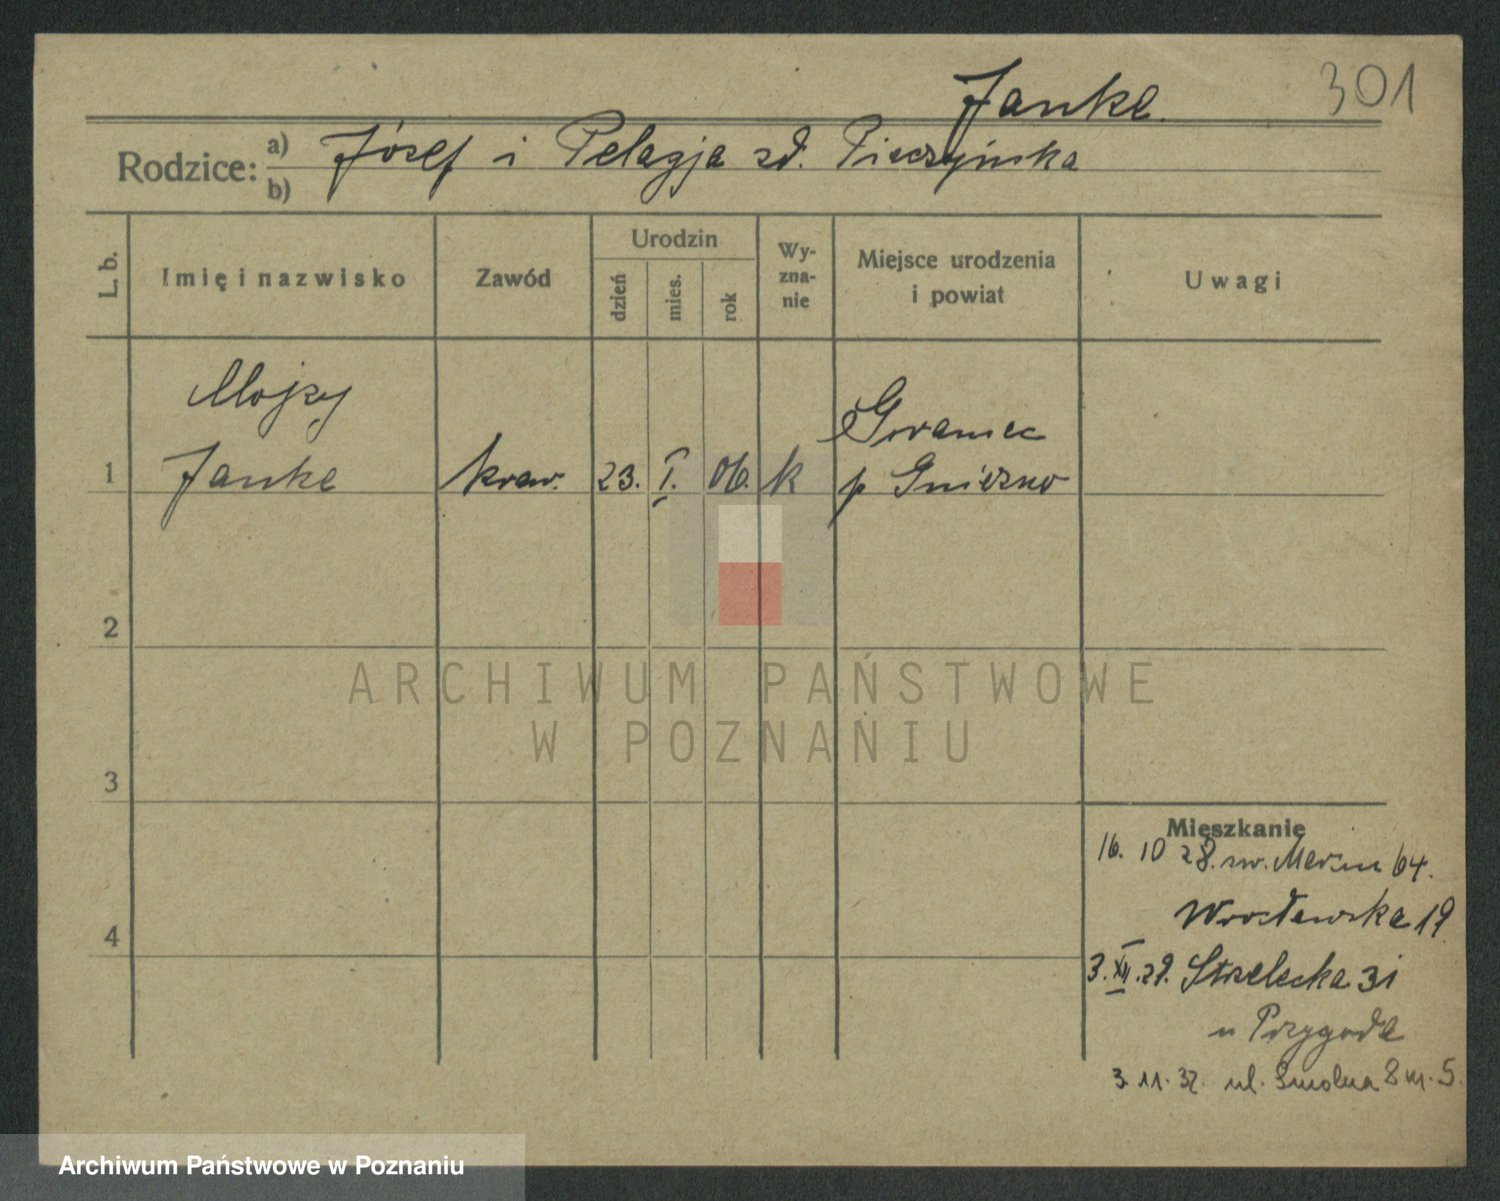 Janke
301
Rodzice: a) Józef i Pelagja zd. Pieczyńska
b)
L. b.
Imię i nazwisko
Zawód
Urodzin
dzień
mies.
rok
Wy-
zna-
nie
Miejsce urodzenia
i powiat
Uwagi
Alojzy
Janke
1
kraw.
23. I. 06.
k
p Gniezno
2
3
4
ARCHIWUM PAŃSTWOWE
W POZNANIU
Mieszkanie
16. 10 28. św. Marcin 64.
Wrocławska 19
3. XII. 29. Strzelecka 31
u Przygoda
3. 11. 32. ul. Smolna 8 m. 5.
Archiwum Państwowe w Poznaniu